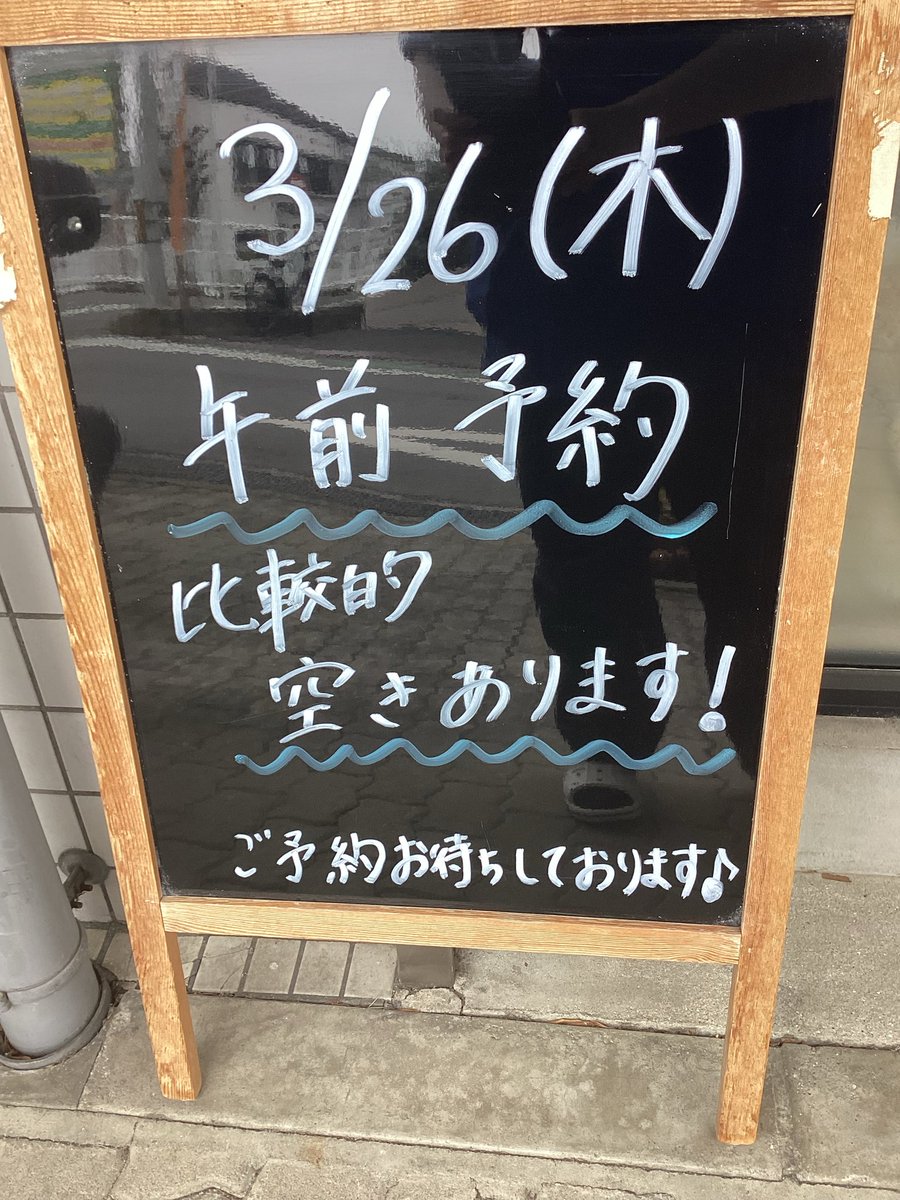 3/26(木)
午前 予約
比較的
空きあります!
ご予約お待ちしております♪